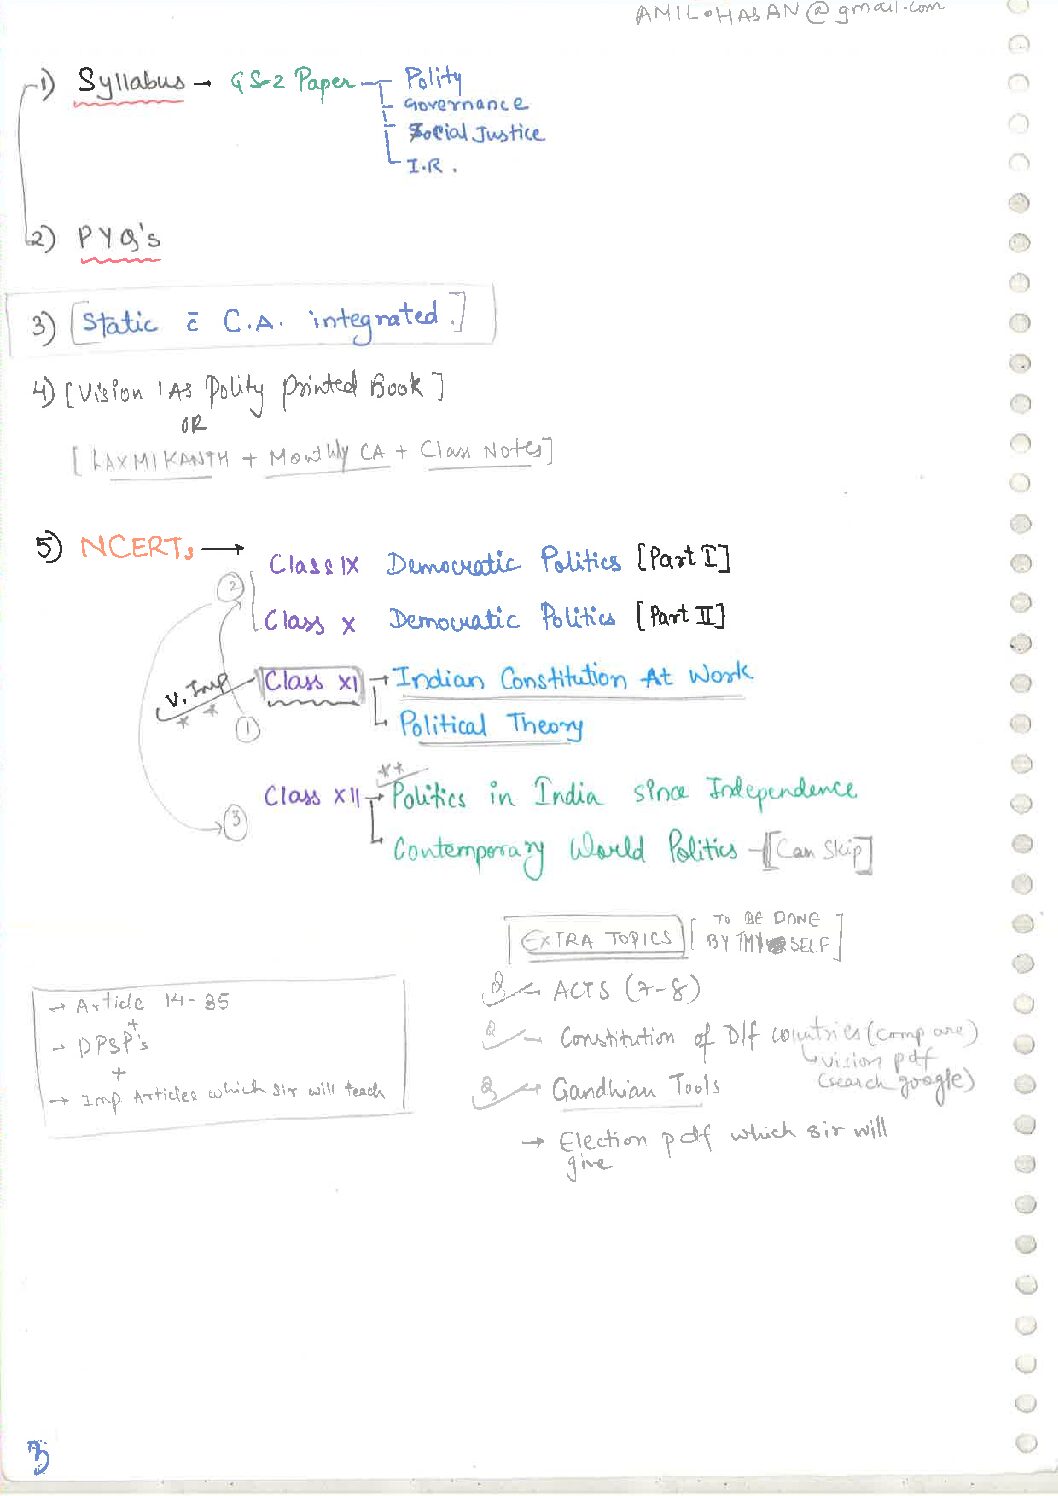 AMIL.HASAN@gmail.com
1) Syllabus → GS-2 Paper Polity
Governance
Social Justice
I.R.
2) PYQ's
3) [Static c̄ C.A. integrated.]
4) [Vision IAS Polity Printed Book]
OR
[LAXMIKANTH + Monthly CA + Class Notes]
5) NCERTs →
Class IX Democratic Politics [Part I]
2
Class X Democratic Politics [Part II]
V. Imp Class XI → Indian Constitution At Work
** 1 Political Theory
**
Class XII → Politics in India since Independence
3
Contemporary World Politics - [Can Skip]
EXTRA TOPICS [TO BE DONE
BY THY SELF]
→ Article 14-35
+
→ DPSP's
+
→ Imp Articles which sir will teach
ACTS (7-8)
Constitution of D/f countries (compare)
↳ vision pdf
(search google)
Gandhian Tools
→ Election pdf which sir will
give